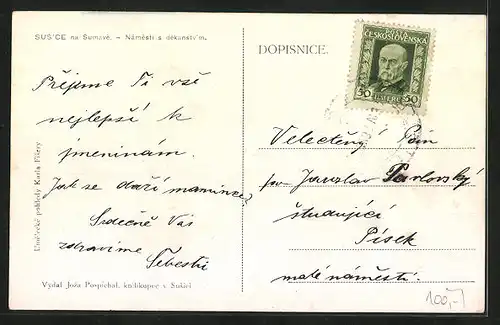 SUŠICE na Šumavě. – Náměstí s děkanstvím.
DOPISNICE.
ČESKOSLOVENSKÁ
50 50
Přejeme Ti vše
nejlepší k
jmeninám.
Jak se daří mamince?
Srdečně Vás
zdravíme
Šebestů
Umělecké pohledy Karla Fišery
Vydal Joža Pospíchal, knihkupec v Sušici
Velectěný Pán
Jaroslav Pavlovský
študující
Písek
malé náměstí.
100,-